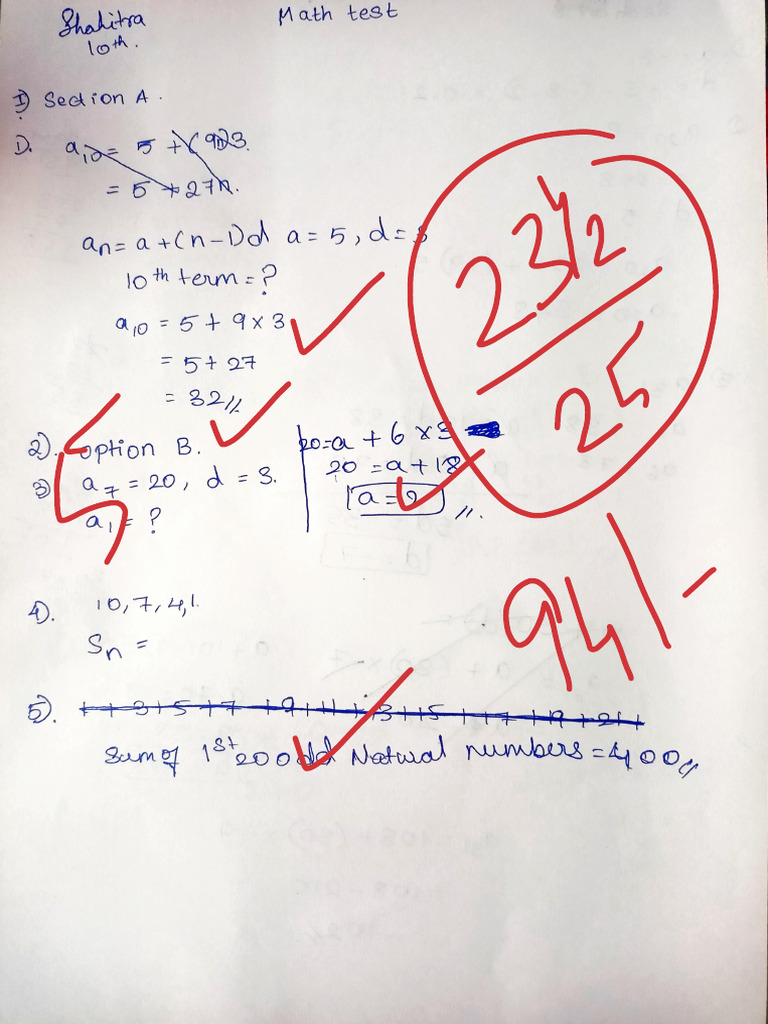 Shahitra Math test
10th.
I) Section A.
1). a10 = 5 + (9n)3.
= 5 + 27n.
an = a + (n-1)d a = 5, d = 3
10th term = ?
a10 = 5 + 9 × 3
= 5 + 27
= 32//
2). option B.
3) a7 = 20, d = 3.
a1 = ?
20 = a + 6 × 3
20 = a + 18
a = 2 //.
4). 10, 7, 4, 1.
Sn =
5). 1 + 3 + 5 + 7 + 9 + 11 + 13 + 15 + 17 + 19 + 21 +
Sum of 1st 20 odd Natural numbers = 400//
23 1/2
25
94/-
5